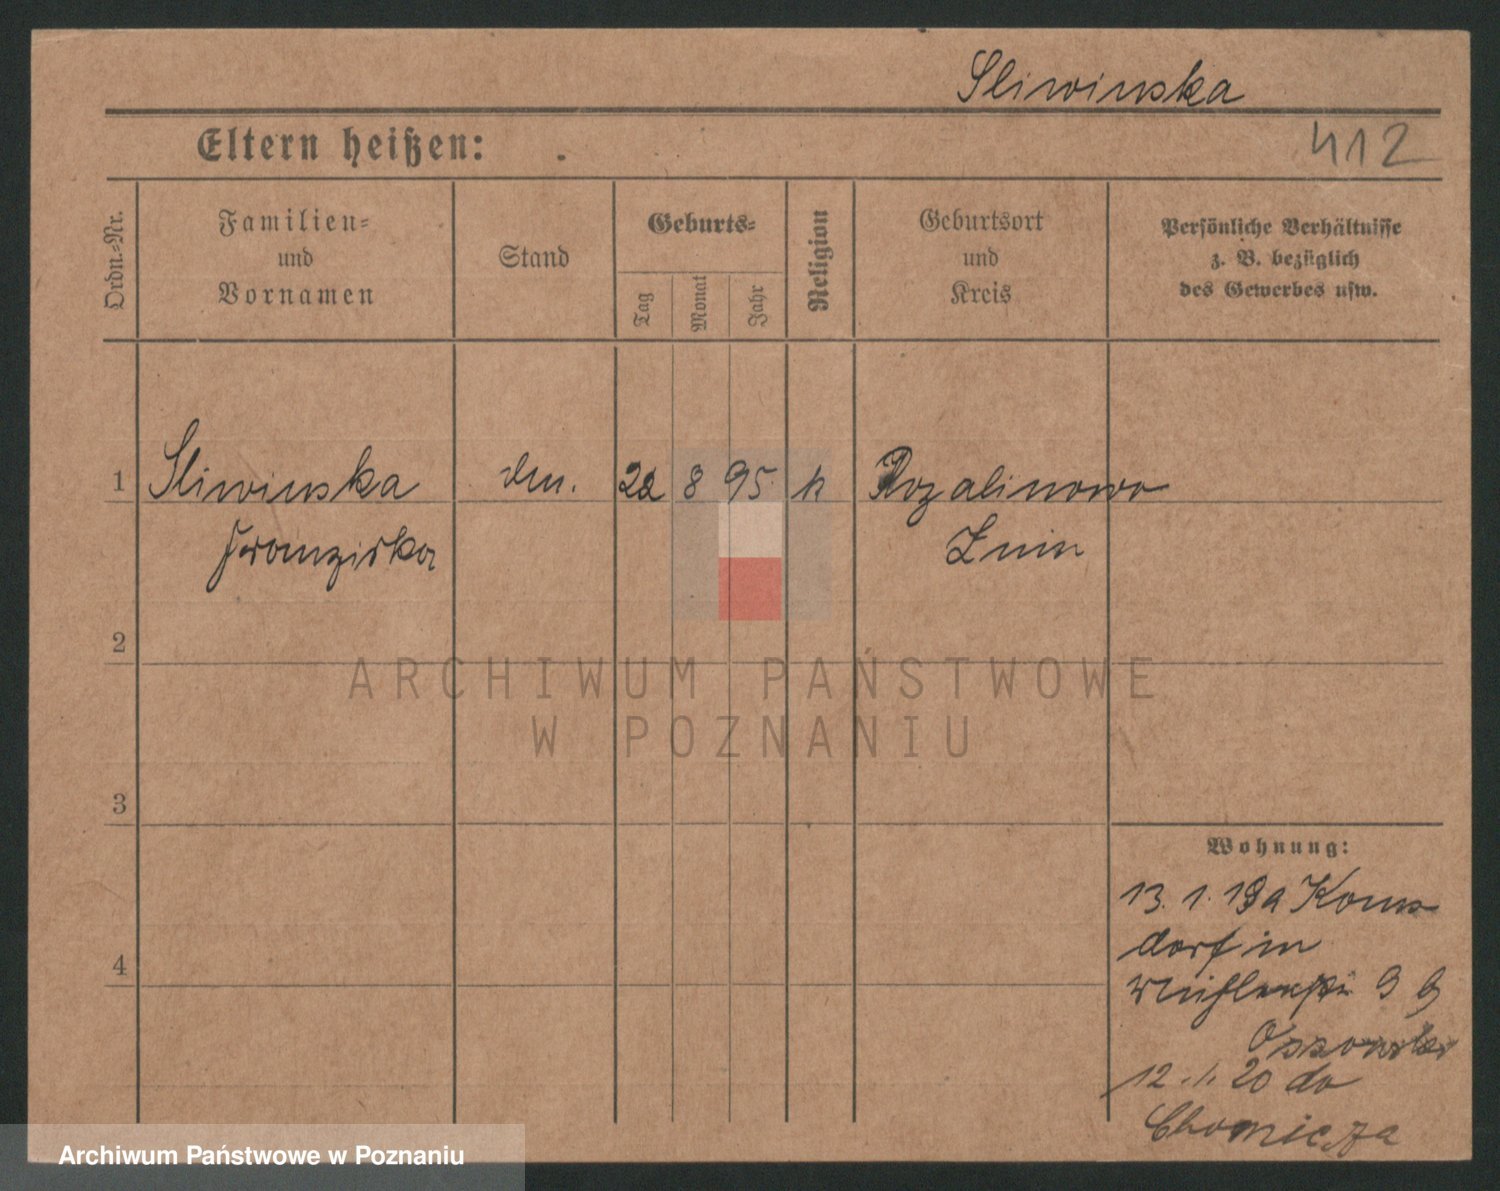 Sliwinska
Eltern heißen:
412
Ordn.-Nr.
Familien-
und
Vornamen
Stand
Geburts-
Tag
Monat
Jahr
Religion
Geburtsort
und
Kreis
Persönliche Verhältnisse
z. B. bezüglich
des Gewerbes usw.
1 Sliwinska 22 8 95 k Rozalinowo
Franziska Znin
2
ARCHIWUM PAŃSTWOWE
W POZNANIU
3
Wohnung:
13. 1. 19 a
dorf in
4
Ossowski
12. 1. 20 do
Chomicza
Archiwum Państwowe w Poznaniu